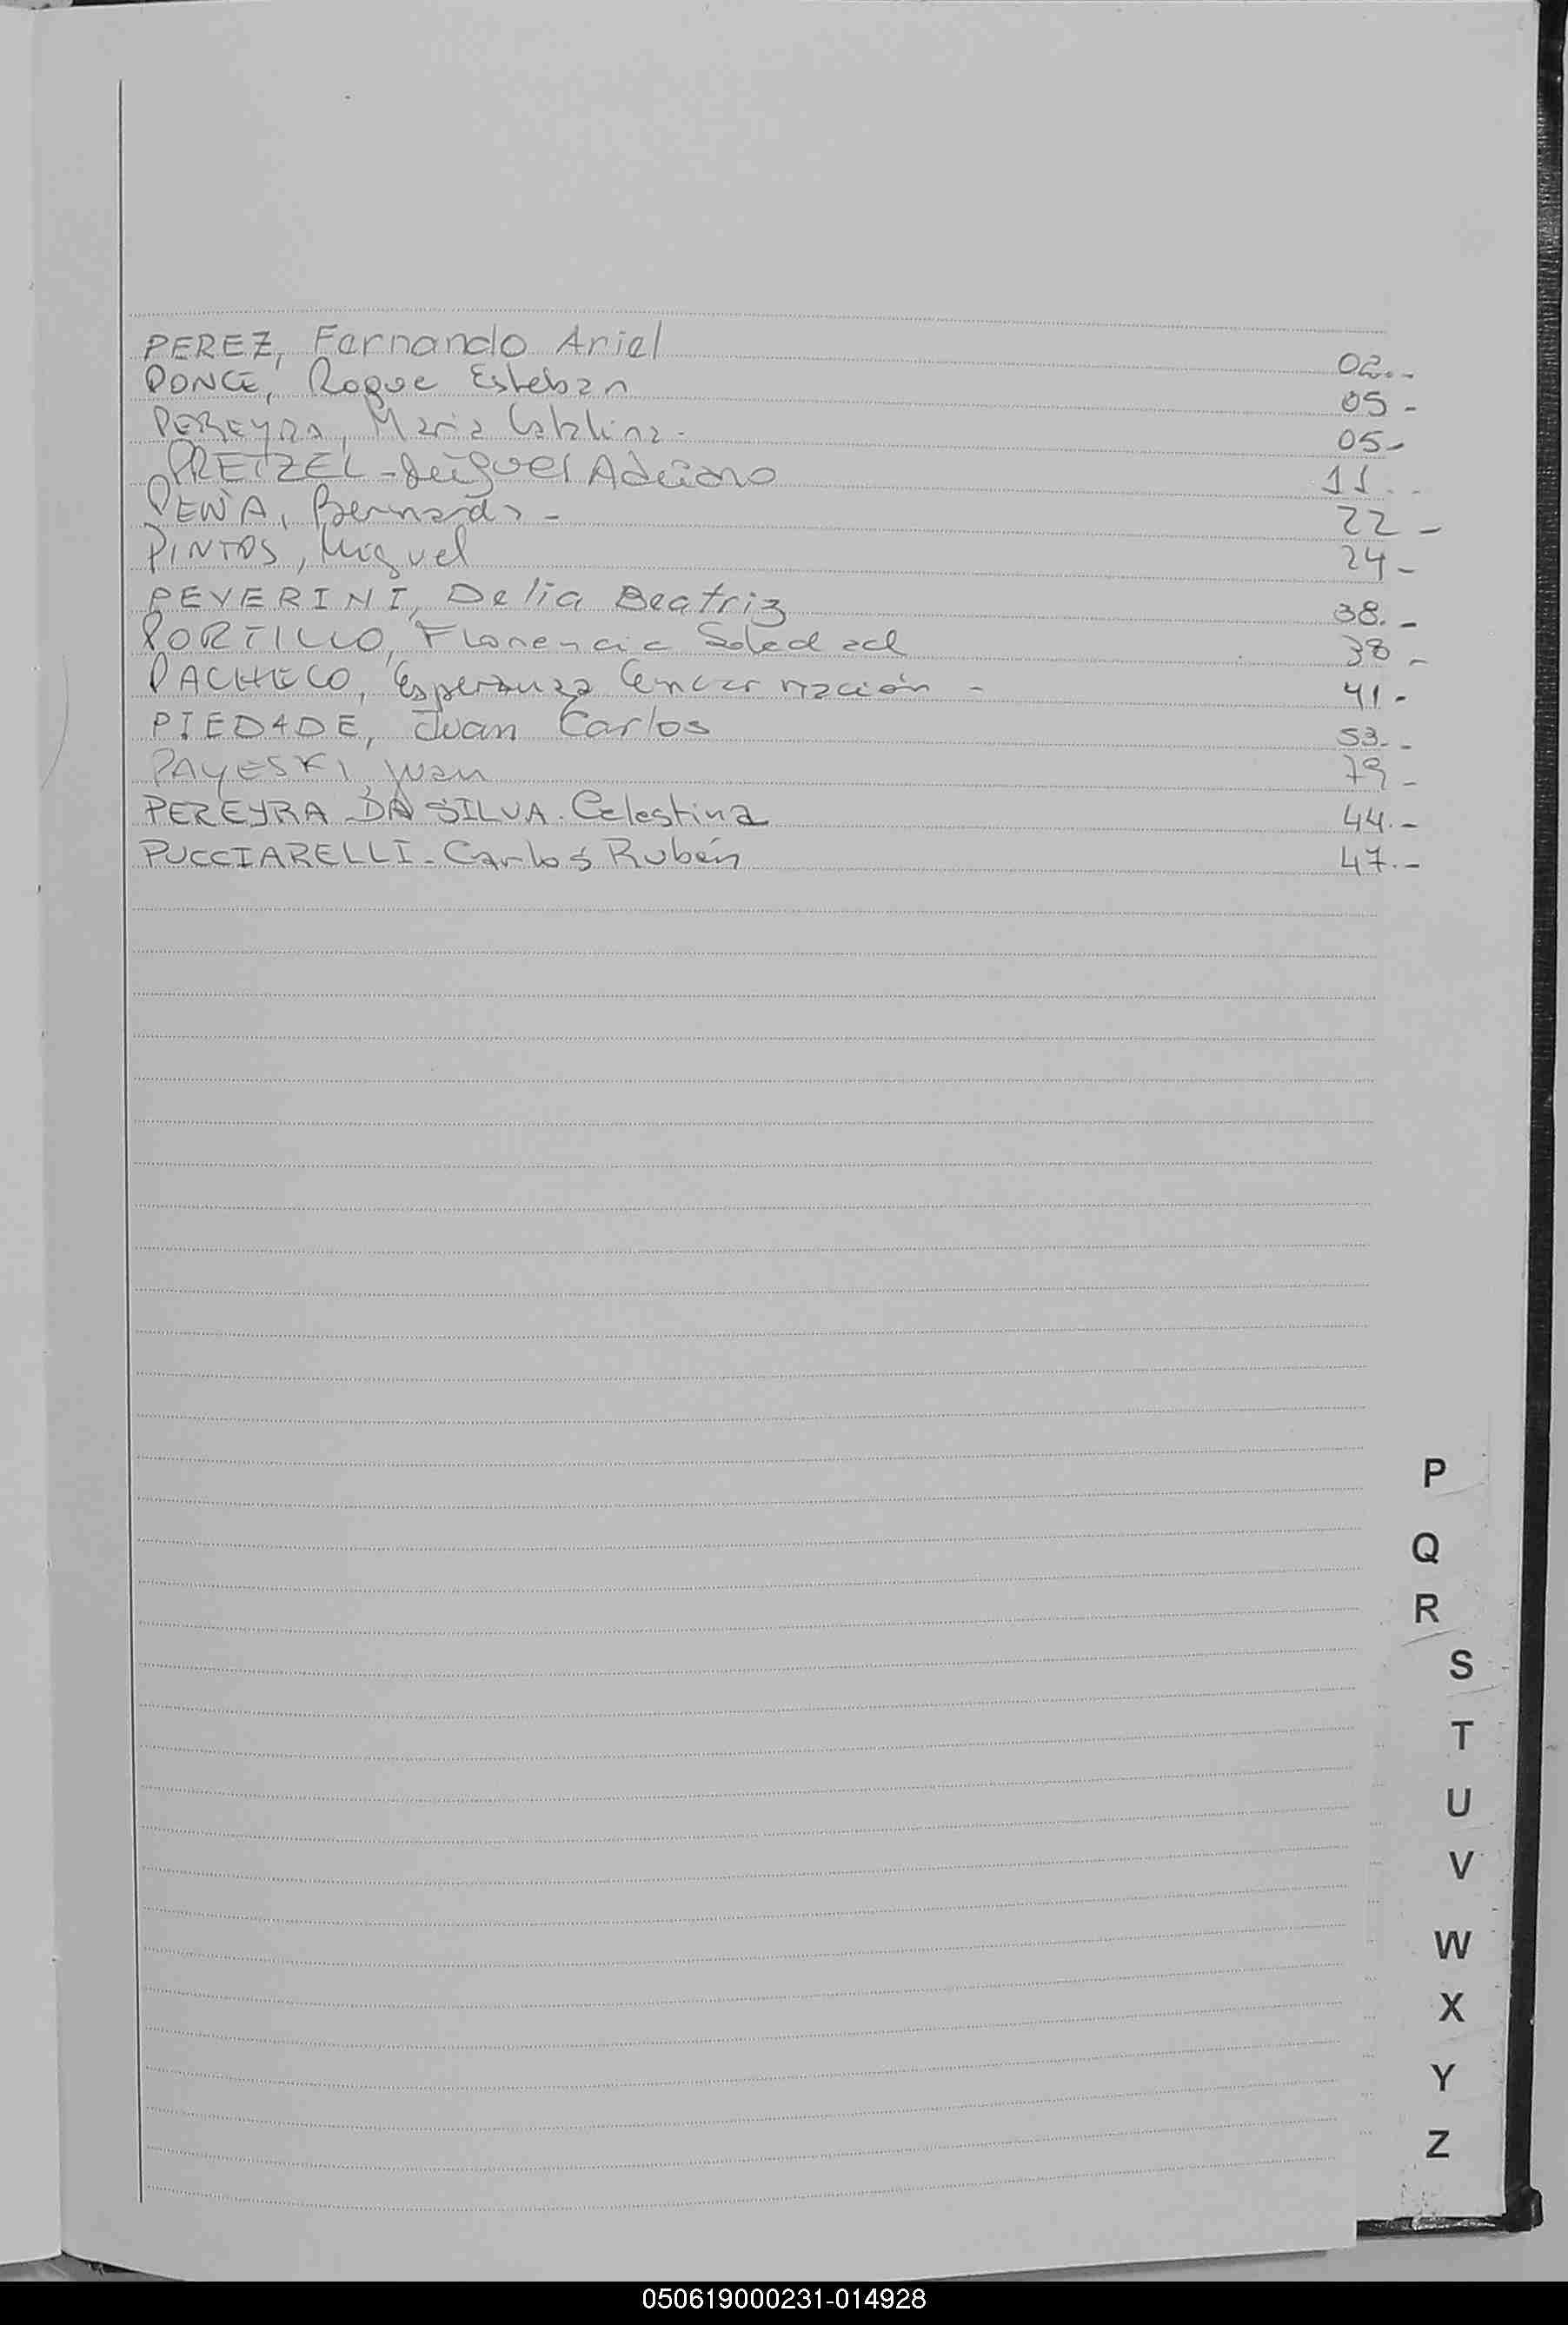 PEREZ, Fernando Ariel 02.-
PONCE, Roque Esteban 05-
PEREYRA, Maria Catalina- 05-
PRETZEL-Miguel Adriano 11.-
PEÑA, Bernarda- 22-
PINTOS, Miguel 24-
PEVERINI, Delia Beatriz 38.-
PORTILLO, Florencia Soledad 38-
PACHECO, Esperanza Encarnación - 41-
PIEDADE, Juan Carlos 53.-
PAYESKI, Juan 79-
PEREYRA DA SILVA. Celestina 44.-
PUCCIARELLI- Carlos Rubén 47.-
P
Q
R
S
T
U
V
W
X
Y
Z
050619000231-014928